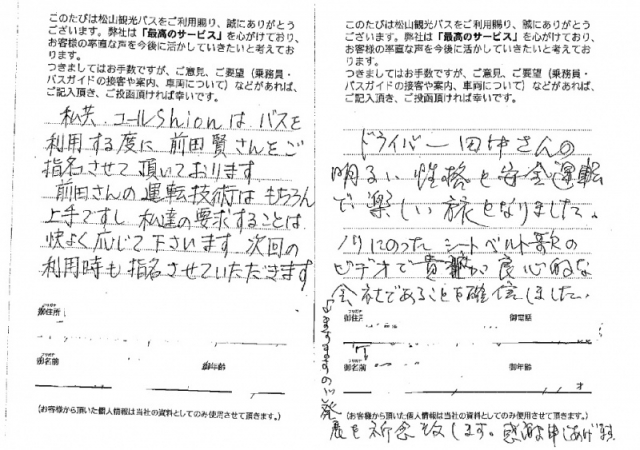 このたびは松山観光バスをご利用賜り、誠にありがとう
ございます。弊社は「最高のサービス」を心がけており、
お客様の率直な声を今後に活かしていきたいと考えてお
ります。
つきましてはお手数ですが、ご意見、ご要望（乗務員・
バスガイドの接客や案内、車両について）などがあれば、
ご記入頂き、ご投函頂ければ幸いです。
私共、コールShionは、バスを
利用する度に前田賢さんをご
指名させて頂いております
前田さんの運転技術はもちろん
上手ですし私達の要求することは
快よく応じて下さいます。次回の
利用時も指名させていただきます
御住所
御名前
御年齢
（お客様から頂いた個人情報は当社の資料としてのみ使用させて頂きます。）
このたびは松山観光バスをご利用賜り、誠にありがとう
ございます。弊社は「最高のサービス」を心がけており、
お客様の率直な声を今後に活かしていきたいと考えてお
ります。
つきましてはお手数ですが、ご意見、ご要望（乗務員・
バスガイドの接客や案内、車両について）などがあれば、
ご記入頂き、ご投函頂ければ幸いです。
ドライバー田中さんの
明るい性格と安全運転
で楽しい旅となりました。
ノリにのったシートベルト歌の
ビデオで貴社が良心的な
会社であることを確信しました。
御住所
御電話
御名前
御年齢
才
（お客様から頂いた個人情報は当社の資料としてのみ使用させて頂きます。）
発
展を祈念致します。感謝申しあげます